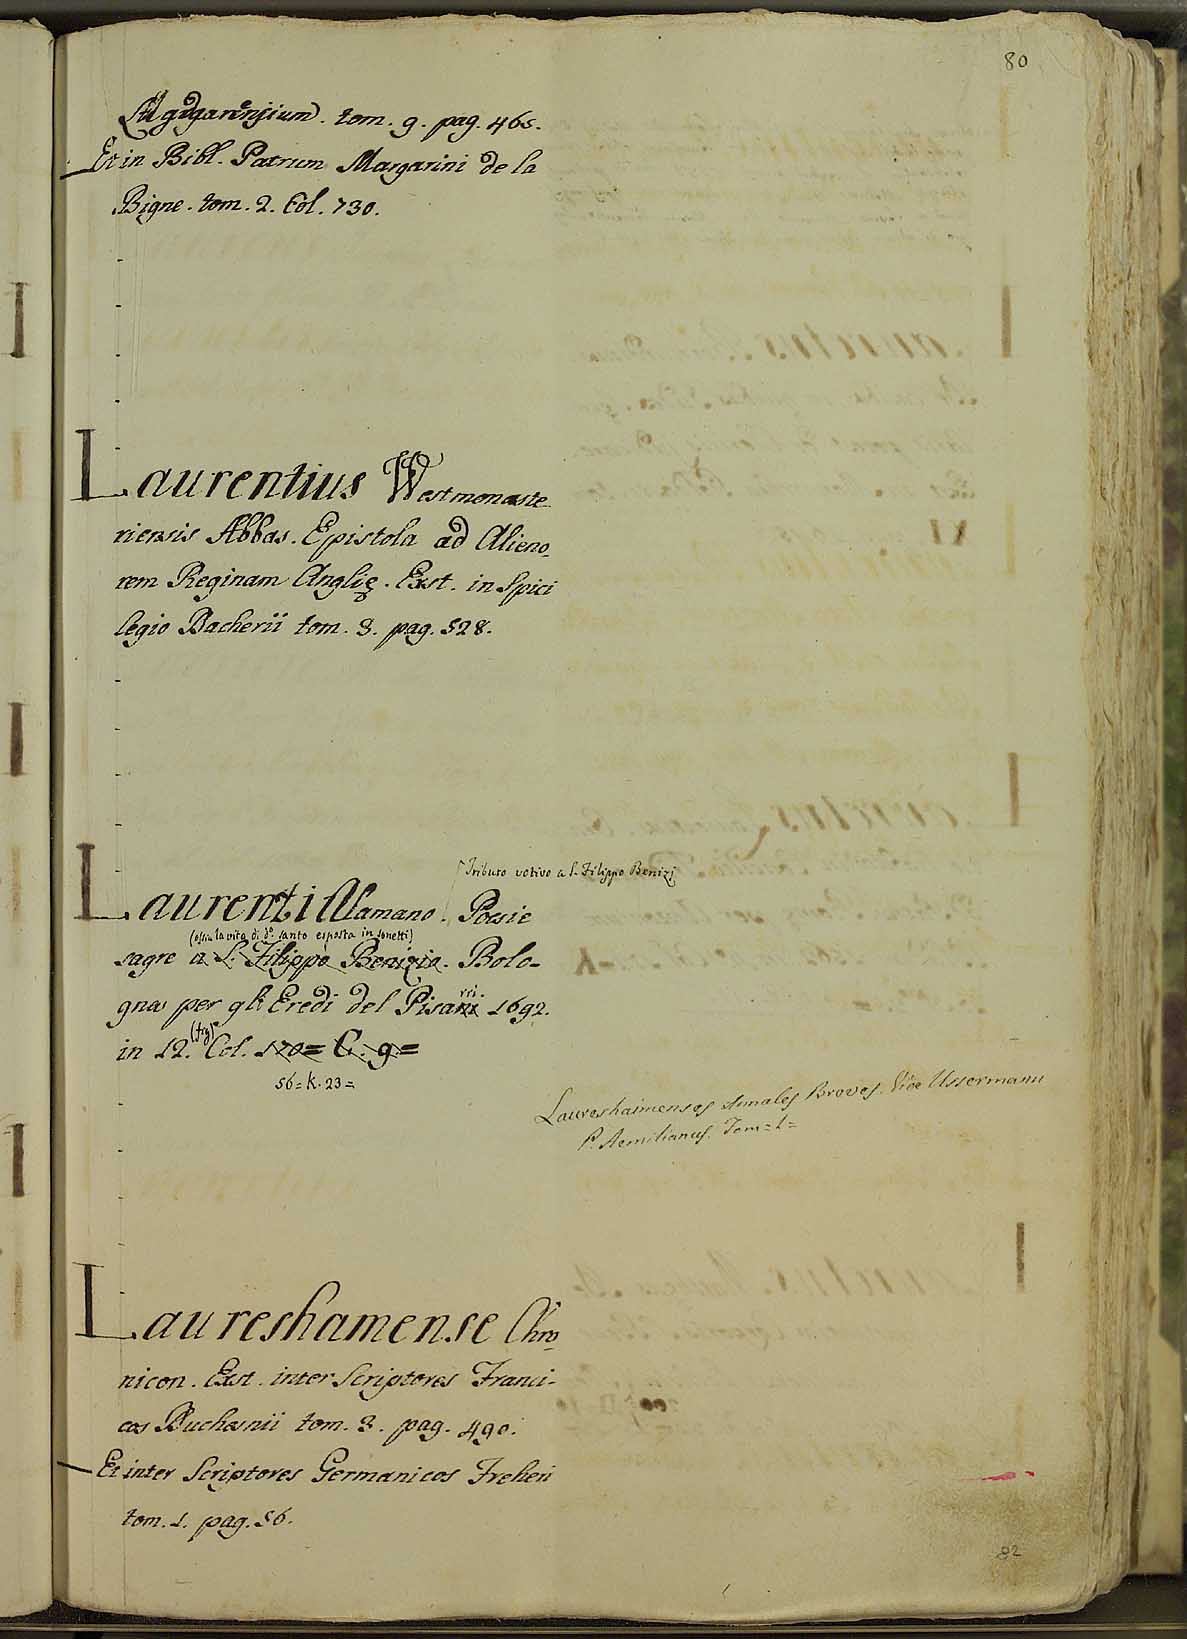 80
tom. 9. pag. 465.
Et in Bibl. Patrum Margarini de la
Bigne. tom. 2. Col. 730.
Laurentius Westmonaste
riensis Abbas. Epistola ad Alieno
rem Reginam Anglię. Exst. in Spici
legio Dacherii tom. 3. pag. 528.
Tributo votivo a S. Filippo Benizi
Laurenti Alamano. Poesie
(ossia la vita di do. santo esposta in sonetti)
sagre a S. Filippo Benizio. Bolo-
gna per gli Eredi del Pisarri 1692.
in 12. (fig) Col. 170 = C. 9. =
56 = K. 23 =
Laureshaimenses Annales Breves. Vide Ussermann
P. Aemilianus. Tom = 1 =
Laureshamense Chro
nicon. Exst. inter Scriptores Franci-
cos Duchesnii tom. 3. pag. 490.
Et inter Scriptores Germanicos Freheri
tom. 1. pag. 56.
82